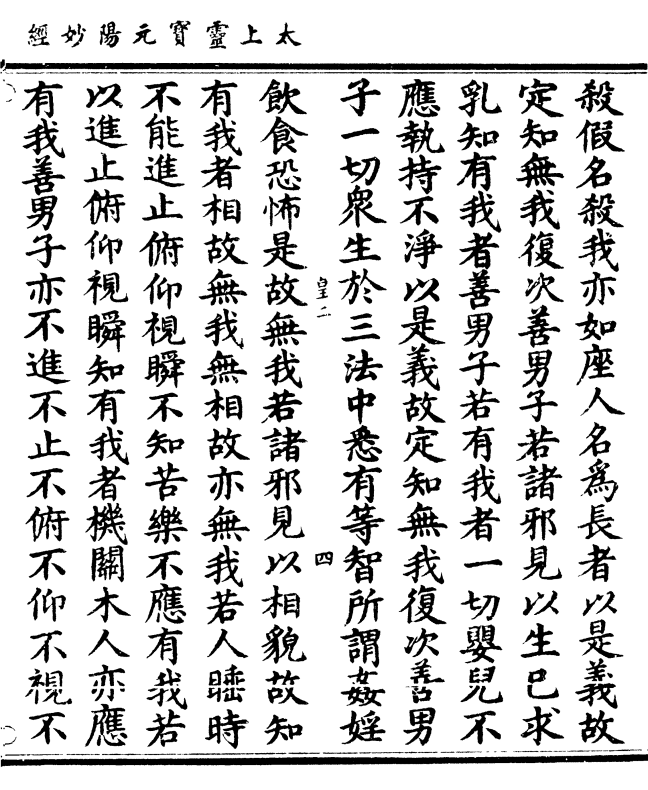 太上靈寶元陽妙經
殺假名殺我亦如座人名爲長者以是義故
定知無我復次善男子若諸邪見以生已求
乳知有我者善男子若有我者一切嬰兒不
應執持不淨以是義故定知無我復次善男
子一切衆生於三法中悉有等智所謂姦婬
皇二
四
飲食恐怖是故無我若諸邪見以相貌故知
有我者相故無我無相故亦無我若人睡時
不能進止俯仰視瞬不知苦樂不應有我若
以進止俯仰視瞬知有我者機關木人亦應
有我善男子亦不進不止不俯不仰不視不